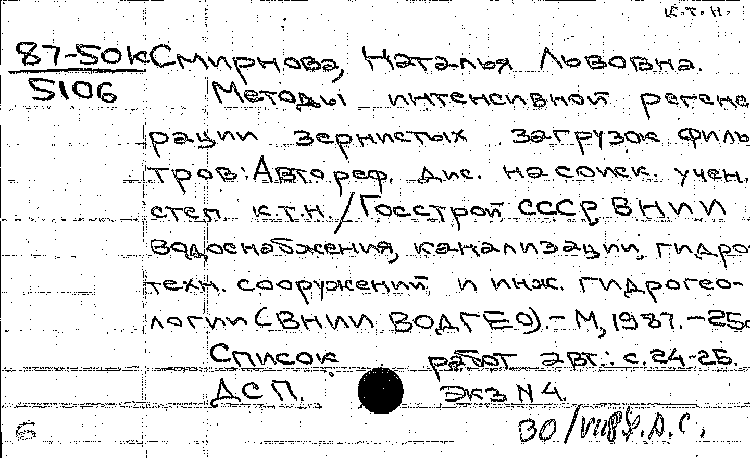 к.т.н.
87-50к Смирнова, Наталья Львовна.
5106 Методы интенсивной регене
рации зернистых загрузок филь
тров: Автореф. дис. на соиск. учен.
степ. к.т.н. / Госстрой СССР, ВНИИ
водоснабжения, канализации, гидро
техн. сооружений и инж. гидрогео-
логии (ВНИИ ВОДГЕО). - М, 1987. - 25с
Список работ авт.: с. 24-25.
ДСП. Экз N 4.
6